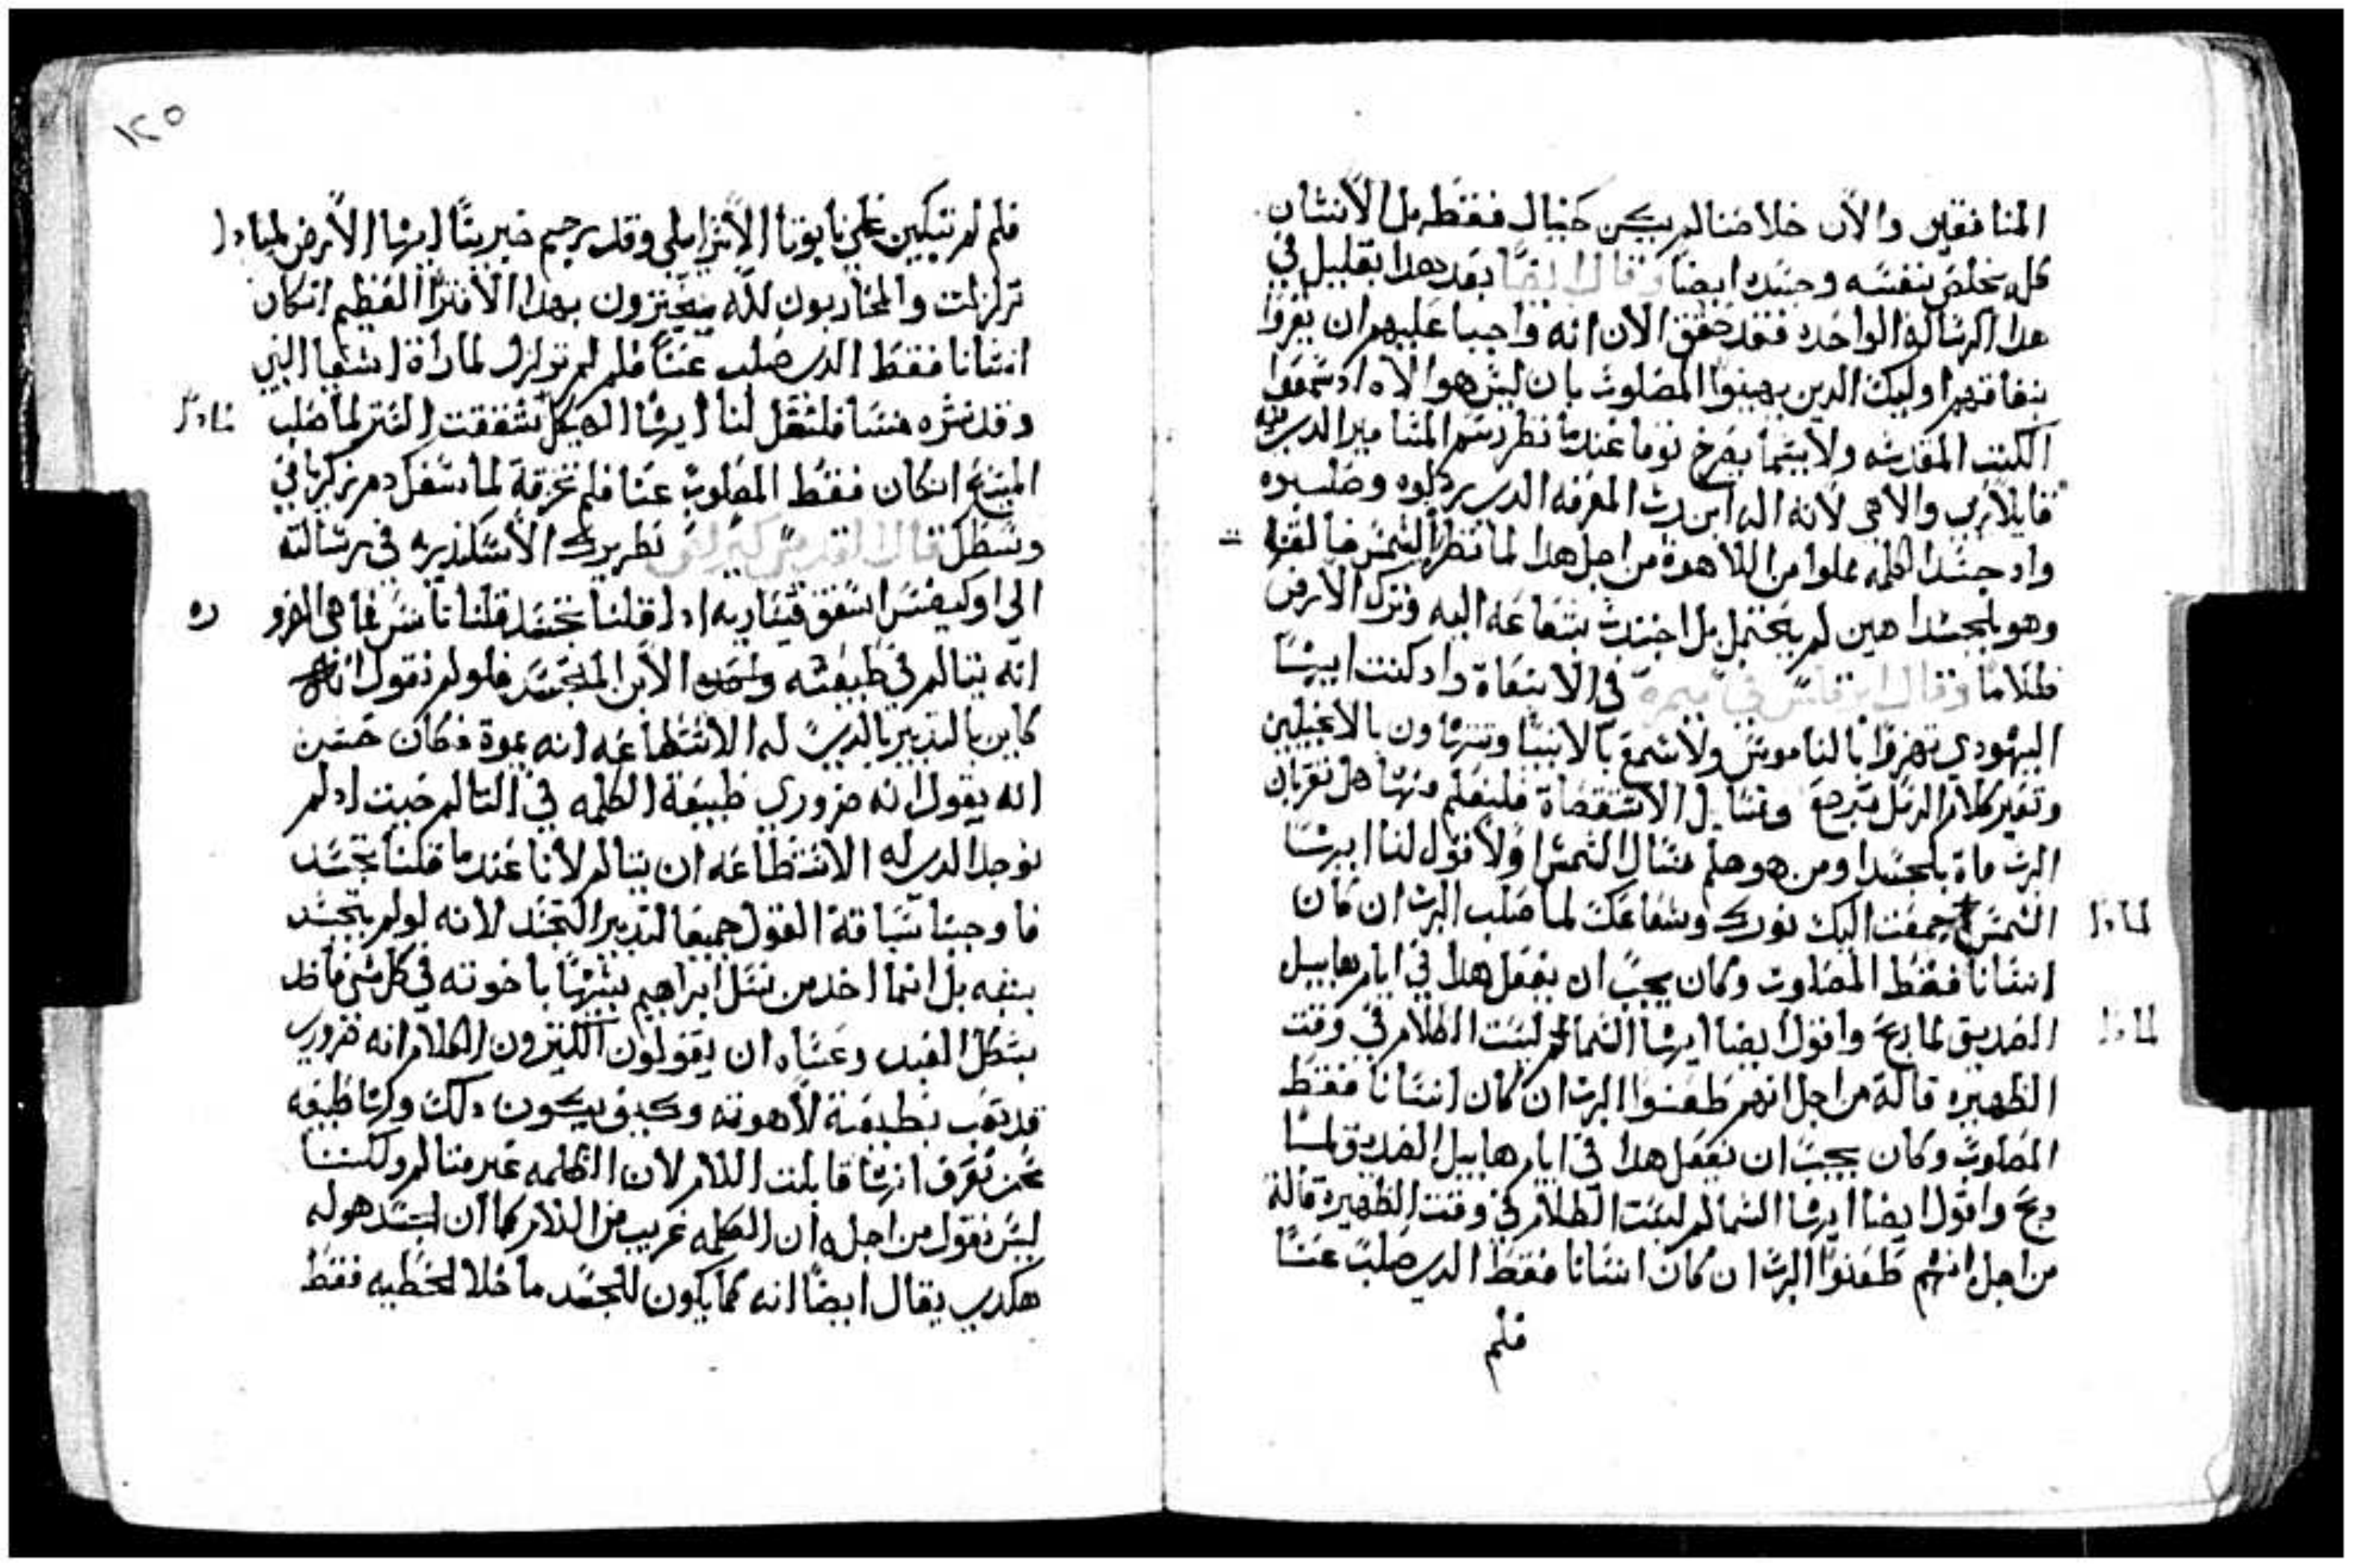 المنافقين والان خلاصنا لم يكن خيال فقط بل الانسان
كله يخلص بنفسه وجسده ايضا وقال ايضا بعد هدا بقليل في
هدا الرساله الواحده فقد تحقق الان انه واجبا عليهم ان يعرفوا
بنفاقهم اوليك الدين يهينوا المصلوب بان ليس هوا الاه اد سمعوا
الكتب المقدسه ولا سيما بفرح توما عندما نظر رسم المسامير الدي
قايلا ربي والاهي لانه اله ابن رب المعرفه الدي ردلوه وصلبوه
واد جسد الكلمه مملوا من اللاهوة من اجل هدا لما نظر الشمس خالقها
وهو بالجسد اهين لم يحتمل بل اجتدب شعاعه اليه وترك الارض
ظلاما وقال ابرقلس في ميمره في الابتعاة واد كنت ايها
اليهودي تهزوا بالناموس ولا تسمع بالانبيا وتتهاون بالانجيلين
وتغير كلام الرسل فترجع وتسايل الاستقصاة فليعلم منها هل تقربان
الرب ماة بالجسد ومن هو هلم نسال الشمس ولا نقول لنا ايها
الشمس جمعت اليك نورك وشعاعك لما صلب الرب ان كان
لمادا
انسانا فقط المصلوب وكان يجب ان يفعل هدا في ايام هابيل
الصديق لما دبح واقول ايضا ايها السما لم لبست الظلام في وقت
لمادا
الظهيره قالة من اجل انهم طعنوا الرب ان كان انسانا فقط
المصلوب وكان يجب ان تفعل هدا في ايام هابيل الصديق لما
دبح واقول ايضا ايها السما لم لبست الظلام في وقت الظهيرة قالة
من اجل انهم طعنوا الرب ان كان انسانا فقط الدي صلب عنا
فلم
١٢٥
فلم لم تبكين علي نابوتا الاسراييلي وقد رجم خبريتا ايها الارض لمادا
تزلزلت والمحاربون لله يجتزون بهدا الافترا العظيم انكان
انسانا فقط الدي صلب عنا فلم لم تزلزل لما راة اشعيا النبي
وقد نشره منسا فلتقل لنا ايها الهيكل تشققت الستر لما صلب
المسيح انكان فقط المصلوب عنا فلم تخرقة لما سفك دم زكريا في
وسطك قال القديس كيرلس بطريرك الاسكندريه في رسالته
الي اوكيفسس اسقف قيساريه ادا قلنا تجسد قلنا تانس فما هي الضرو
ره
انه يتالم في طبيعته وحده الابن المتجسد فلولم نقول انه
كاين بالتدبير بالدي له الاستطاعه انه يموة فكان حسن
انه يقول انه ضروري طبيعة الكلمه في التالم حيت ادلم
نوجد الدي له الاستطاعه ان يتالم لانا عندما قلنا تجسد
فاوجبنا سياقة القول جميعا لتدبير التجسد لانه لولم يتجسد
بنفه بل انما اخد من نسل ابراهيم يشبها باخوته في كل شي فاخد
بشكل العبد وعساه ان يقولون الكتيرون الكلام انه ضروري
قد تعب بطبيعة لاهوته وكيف يكون دلك وكرها طبيعه
نحن نعرف انها قابلت اللالام لان الكلمه غير متالم ولكننا
ليس نقول من اجل ان الكلمه غريب من اللالام كما ان الجسد هوله
هكدي يقال ايضا انه كما يكون للجسد ما خلا الخطيه فقط